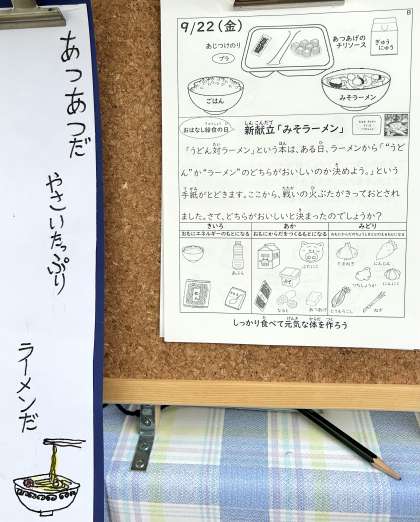 あつあつだ
やさいたっぷり
ラーメンだ
8
9/22(金)
あじつけのり
プラ
あつあげの
チリソース
ぎゅう
にゅう
ごはん
みそラーメン
おはなし給食の日
新献立「みそラーメン」
「うどん対ラーメン」という本は、ある日、ラーメンから「“うど
ん”か“ラーメン”のどちらがおいしいのか決めよう。」という
手紙がとどきます。ここから、戦いの火ぶたがきっておとされ
ました。さて、どちらがおいしいと決まったのでしょうか?
きいろ
あか
みどり
おもにエネルギーのもとになる
おもにからだをつくるもとになる
しっかり食べて元気な体を作ろう